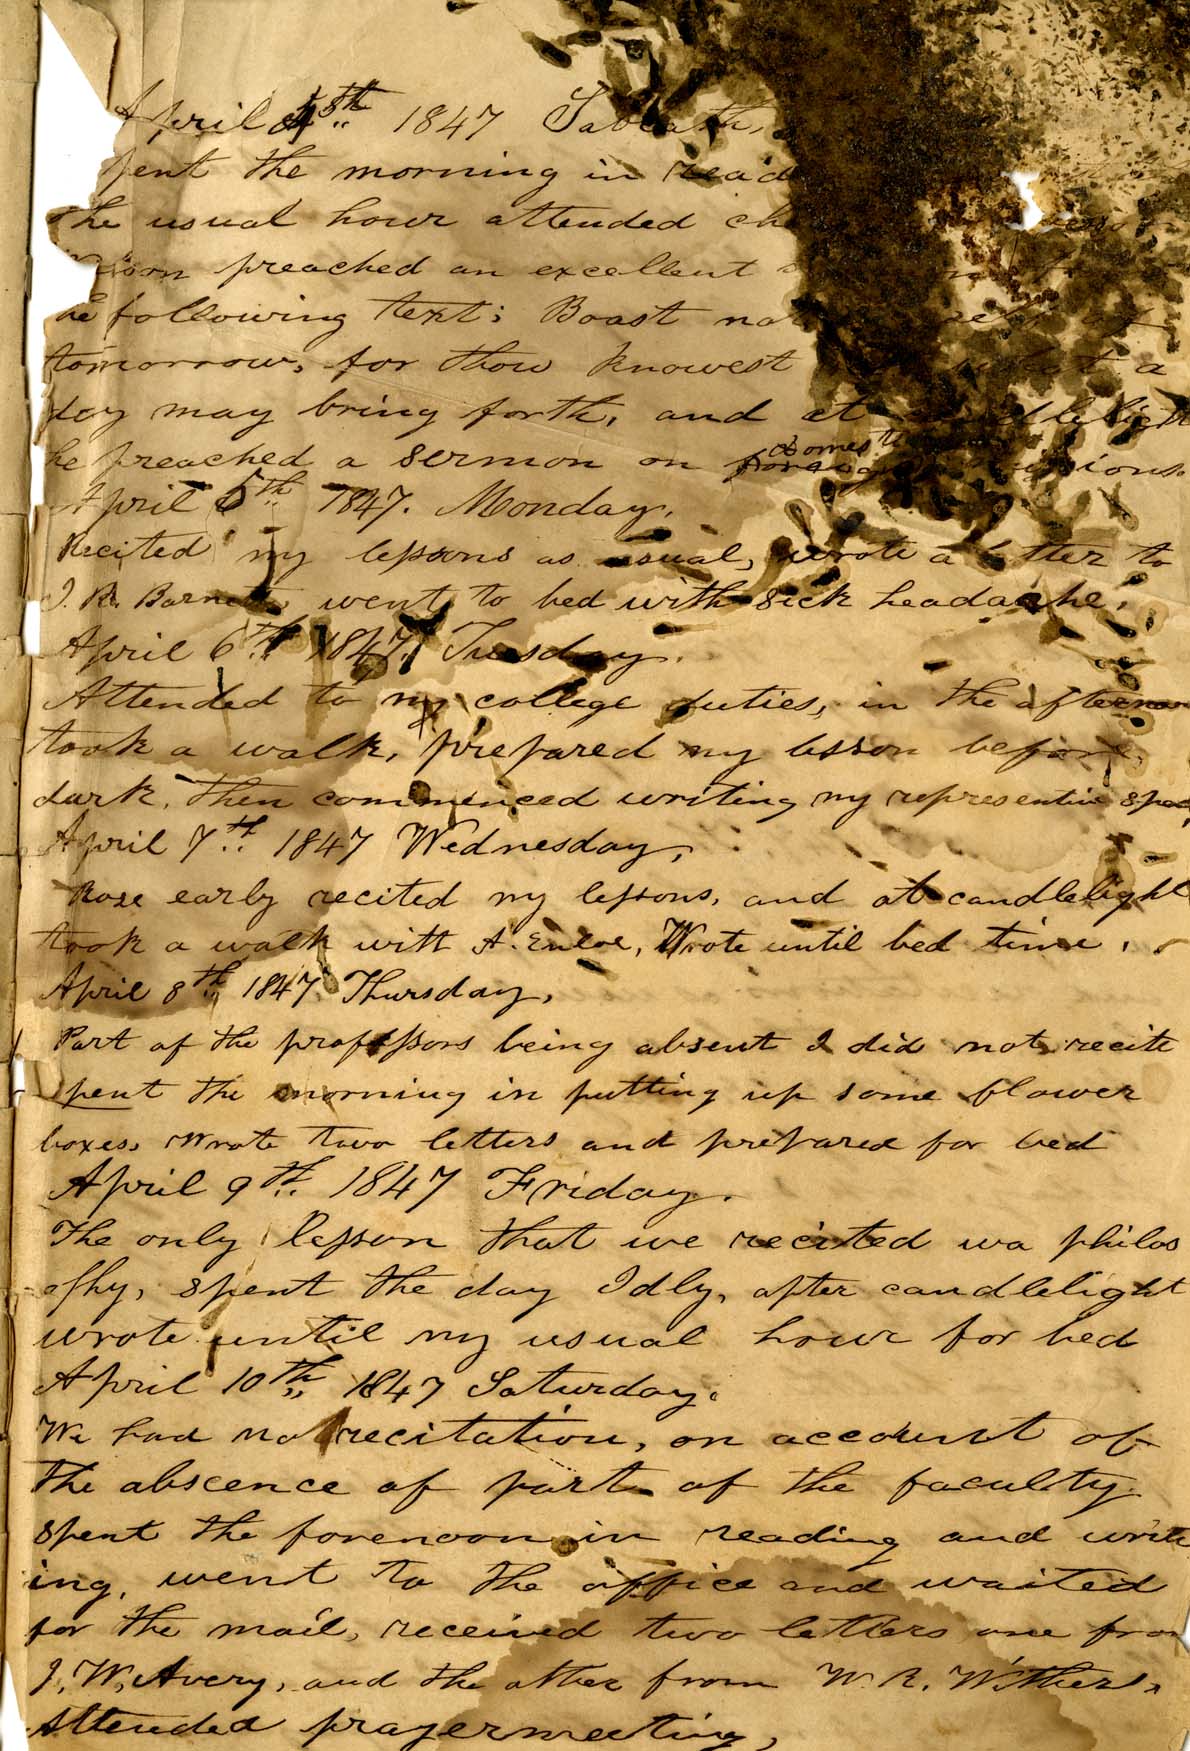 April 4th 1847 Sabbath,
spent the morning in read
the usual hour attended
preached an excellent
the following text; Boast not of
tomorrow, for thou knowest what a
day may bring forth, and at candlelight
he preached a sermon on domestic missions.
April 5th 1847. Monday.
Recited my lessons as usual, wrote a letter to
J. R. Barnett, went to bed with sick headache.
April 6th 1847. Tuesday.
Attended to my college duties, in the afternoon
took a walk, prepared my lesson before
dark, then commenced writing my representive spee
April 7th 1847 Wednesday,
Rose early recited my lessons, and at candlelight
took a walk with A. Enloe, Wrote until bed time.
April 8th 1847 Thursday,
Part of the professors being absent I did not recite
spent the morning in putting up some flower
boxes, wrote two letters and prepared for bed
April 9th 1847 Friday.
The only lesson that we recited wa philos
ophy, spent the day Idly, after candlelight
wrote until my usual hour for bed
April 10th 1847 Saturday.
We had no recitation, on account of
the abscence of part of the faculty
spent the forenoon in reading and writ
ing, went to the office and waited
for the mail, received two letters one from
J. W. Avery, and the other from W. R. Withers,
Attended prayermeeting,